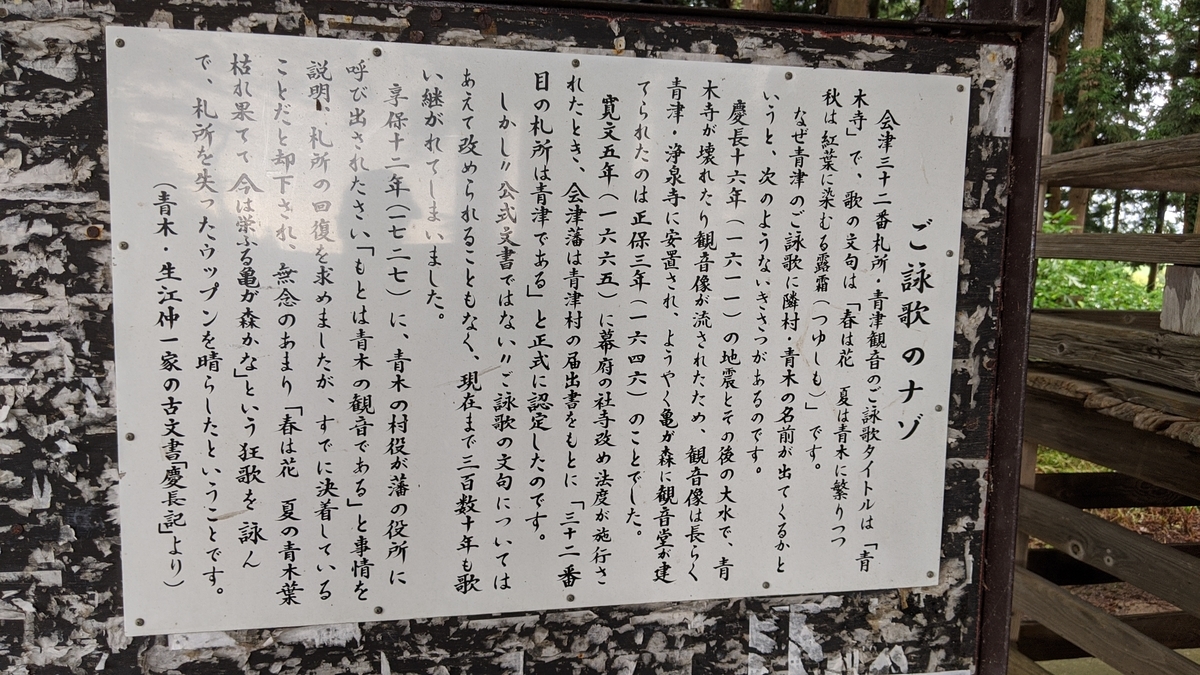 ご詠歌のナゾ
会津三十二番札所・青津観音のご詠歌タイトルは「青
木寺」で、歌の文句は「春は花　夏は青木に繁りつつ
秋は紅葉に染むる露霜(つゆしも)」です。
なぜ青津のご詠歌に隣村・青木の名前が出てくるかと
いうと、次のようないきさつがあるのです。
慶長十六年(一六一一)の地震とその後の大水で、青
木寺が壊れたり観音像が流されたため、観音像は長らく
青津・浄泉寺に安置され、ようやく亀が森に観音堂が建
てられたのは正保三年(一六四六)のことでした。
寛文五年(一六六五)に幕府の社寺改め法度が施行さ
れたとき、会津藩は青津村の届出書をもとに「三十二番
目の札所は青津である」と正式に認定したのです。
しかし〃公式文書ではない〃ご詠歌の文句については
あえて改められることもなく、現在まで三百数十年も歌
い継がれてしまいました。
享保十二年(一七二七)に、青木の村役が藩の役所に
呼び出されたさい「もとは青木の観音である」と事情を
説明、札所の回復を求めましたが、すでに決着している
ことだと却下され、無念のあまり「春は花　夏の青木葉
枯れ果てて 今は栄ふる亀が森かな」という狂歌を 詠ん
で、札所を失ったウップンを晴らしたということです。
(青木・生江仲一家の古文書「慶長記」より)